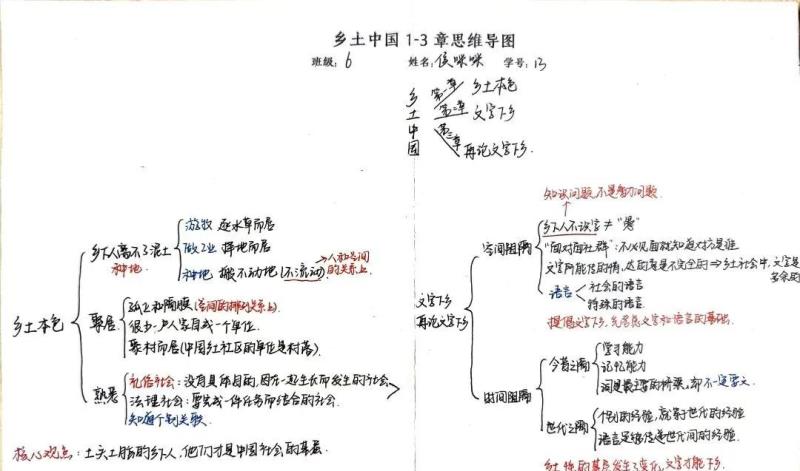 乡土中国1-3章思维导图
班级：6 姓名：侯咪咪 学号：13
乡土中国
第一章 乡土本色
第二章 文字下乡
第三章 再论文字下乡
乡土本色
乡下人离不了泥土
种地
游牧 逐水草而居
做工业 择地而居
种地 搬不动地(不流动)
人和空间的关系上
聚居
孤立和隔膜(空间的排列关系上)
很少一户人家自成一个单位.
聚村而居(中国社区的单位是村落).
熟悉
礼俗社会：没有具体目的,因在一起生长而发生的社会
法理社会：要完成一件任务而结合的社会.
知每个别关联
核心观点：土头土脑的乡下人,他们才是中国社会的基层
文字下乡
再论文字下乡
空间阻隔
知识问题,不是智力问题
乡下人不识字≠"愚"
"面对面社群"：不必见面就知道对方是谁
文字所能传的情,达的意是不完全的⇒乡土社会中,文字是多余的
语言
社会的语言
特殊的语言
提倡文字下乡,先考虑文字和语言的基础.
时间阻隔
今昔之隔
学习能力
记忆能力
词是最主要的桥梁,却不一定要文.
世代之隔
个别的经验,就等于世代的经验
语言足够传递世代间的经验.